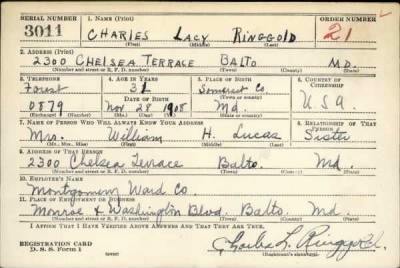 SERIAL NUMBER 1. NAME (Print) ORDER NUMBER
3011 CHARLES LACY RINGGOLD 21
(First) (Middle) (Last)
2. ADDRESS (Print)
2300 CHELSEA TERRACE BALTO MD.
(Number and street or R. F. D. number) (Town) (County) (State)
3. TELEPHONE 4. AGE IN YEARS 5. PLACE OF BIRTH 6. COUNTRY OF CITIZENSHIP
Forest 31 Somerset Co.
DATE OF BIRTH (Town or county)
0879 Nov 28 1908 Md. USA
(Exchange) (Number) (Mo.) (Day) (Yr.) (State or country)
7. NAME OF PERSON WHO WILL ALWAYS KNOW YOUR ADDRESS 8. RELATIONSHIP OF THAT PERSON
Mrs. William H. Lucas Sister
(Mr., Mrs., Miss) (First) (Middle) (Last)
9. ADDRESS OF THAT PERSON
2300 Chelsea Terrace Balto. Md.
(Number and street or R. F. D. number) (Town) (County) (State)
10. EMPLOYER'S NAME
Montgomery Ward Co.
11. PLACE OF EMPLOYMENT OR BUSINESS
Monroe & Washington Blvd. Balto. Md.
(Number and street or R. F. D. number) (Town) (County) (State)
I AFFIRM THAT I HAVE VERIFIED ABOVE ANSWERS AND THAT THEY ARE TRUE.
REGISTRATION CARD
D. S. S. Form 1 Charles L. Ringgold
(over) (Registrant's signature)